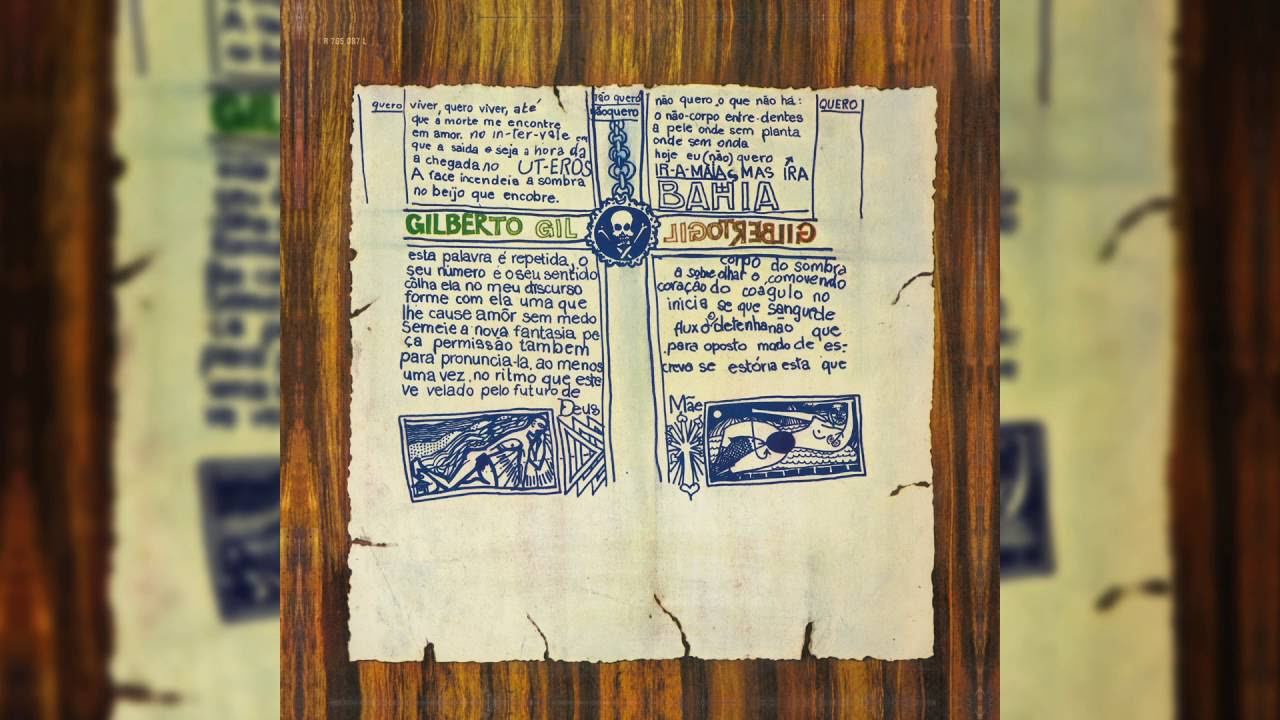 R 765.087 L
quero
viver, quero viver, até
que a morte me encontre
em amor. no in-ter-vale em
que a saida e seja a hora da
a chegada no UT-EROS
A face incendeia a sombra
no beijo que encobre.
não quero
nãoquero
não quero o que não há:
o não-corpo entre-dentes
a pele onde sem planta
onde sem onda
hoje eu (não) quero
IR-A-MAIAS MAS IRA
BAHIA
QUERO
GILBERTO GIL
GILBERTOGIL
esta palavra é repetida, o
seu número é o seu sentido
côlha ela no meu discurso
forme com ela uma que
lhe cause amôr sem medo
Semeie a nova fantasia pe
ça permissão tambem
para pronuncia-la, ao menos
uma vez, no ritmo que este
ve velado pelo futuro de
Deus
corpo do sombra
a sobre olhar o comovendo
coração do coagulo no
inicia se que sangue de
fluxo detenha não que
para oposto modo de es-
creva se estória esta que
Mãe